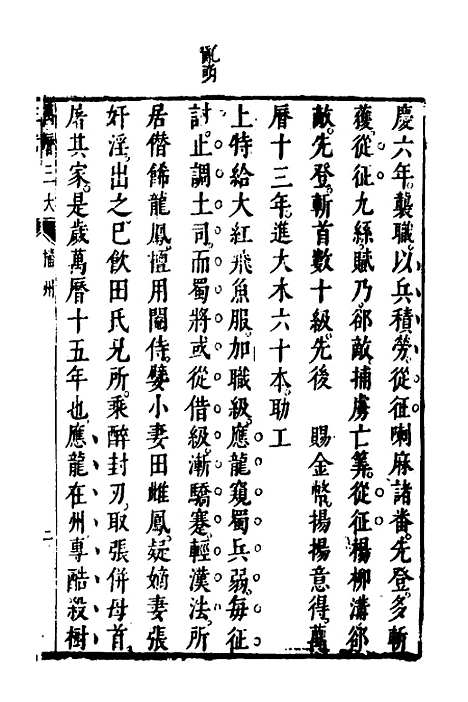 亂萌
慶六年。襲職。以兵積勞。從征喇麻諸番。先登。多斬
獲。從征九絲。賦乃。卻敵。捕虜亡筭。從征楊柳溝。卻
敵。先登。斬首數十級。先後　賜金幣。揚揚意得。萬
曆十三年。進大木六十本。助工
上特給大紅飛魚服。加職級。應龍窺蜀兵弱。每征
討。止調土司。而蜀將或從借級。漸驕蹇。輕漢法。所
居僣餙龍鳳。擅用閹侍。嬖小妻田雌鳳。疑嫡妻張
奸淫。出之。已飲田氏兄所。乘醉封刃。取張併母首。
屠其家。是歲萬曆十五年也。應龍在州專酷殺樹
萬曆三大
播州
二